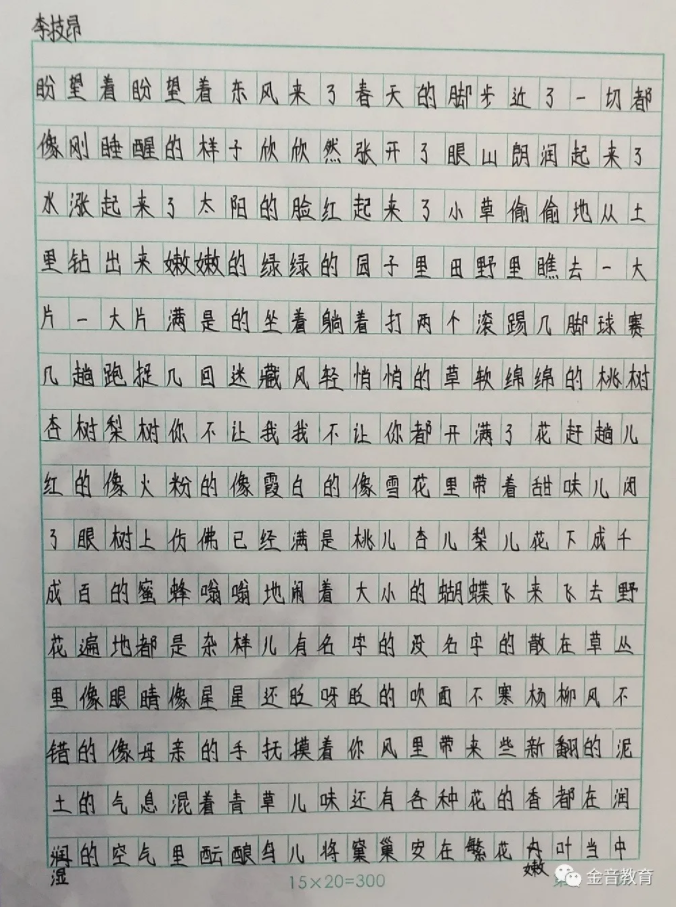 李技昂
盼望着盼望着东风来了春天的脚步近了一切都
像刚睡醒的样子欣欣然张开了眼山朗润起来了
水涨起来了太阳的脸红起来了小草偷偷地从土
里钻出来嫩嫩的绿绿的园子里田野里瞧去一大
片一大片满是的坐着躺着打两个滚踢几脚球赛
几趟跑捉几回迷藏风轻悄悄的草软绵绵的桃树
杏树梨树你不让我我不让你都开满了花赶趟儿
红的像火粉的像霞白的像雪花里带着甜味儿闭
了眼树上仿佛已经满是桃儿杏儿梨儿花下成千
成百的蜜蜂嗡嗡地闹着大小的蝴蝶飞来飞去野
花遍地都是杂样儿有名字的没名字的散在草丛
里像眼睛像星星还眨呀眨的吹面不寒杨柳风不
错的像母亲的手抚摸着你风里带来些新翻的泥
土的气息混着青草儿味还有各种花的香都在润
的空气里酝酿鸟儿将窠巢安在繁花叶当中
湿
嫩
15×20=300
金音教育